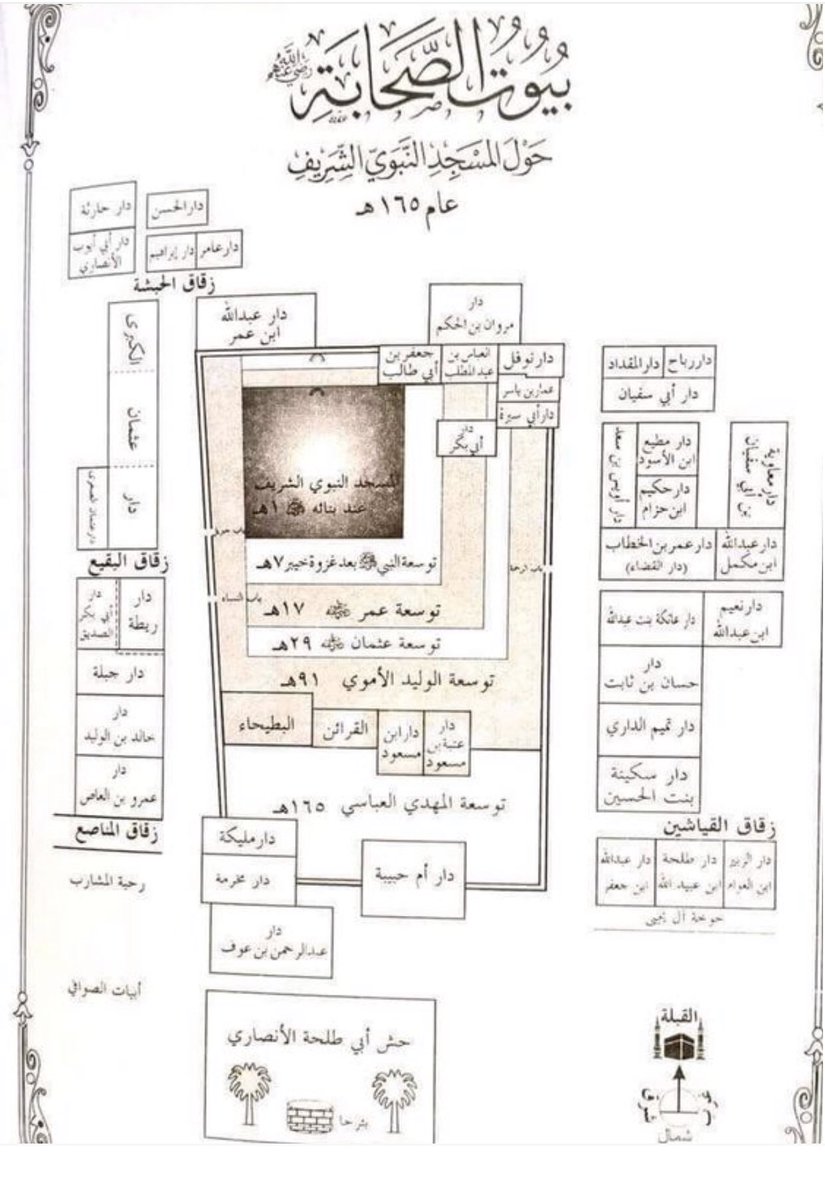 بُيُوتُ الصَّحَابَةِ
رضي الله عنهم
حَوْلَ المَسْجِدِ النَّبَوِيِّ الشَّرِيفِ
عام ١٦٥هـ
دار الحسن
دار حارثة
دار عامر
دار إبراهيم
دار أبي أيوب
الأنصاري
زقاق الحبشة
دار عبدالله
ابن عمر
دار
مروان بن الحكم
دار نوفل
العباس بن
عبدالمطلب
جعفر بن
أبي طالب
عمار بن ياسر
دار أبي سبرة
دار
أبي بكر
دار رباح
دار المقداد
دار أبي سفيان
دار معاوية
بن أبي سفيان
دار مطيع
ابن الأسود
دار حكيم
ابن حزام
دار أويس بن سعد
دار عبدالله
ابن مكمل
دار عمر بن الخطاب
(دار القضاء)
دار نعيم
ابن عبدالله
دار عاتكة بنت عبدالله
دار
حسان بن ثابت
دار تميم الداري
دار سكينة
بنت الحسين
زقاق القياشين
دار الزبير
ابن العوام
دار طلحة
ابن عبيد الله
دار عبدالله
ابن جعفر
خوخة آل يحيى
دار عثمان الكبرى
دار عثمان الصغرى
زقاق البقيع
دار
ريطة
دار
أبي بكر
الصديق
دار جبلة
دار
خالد بن الوليد
دار
عمرو بن العاص
زقاق المناصع
رحبة المشارب
أبيات الصوافي
المسجد النبوي الشريف
عند بنائه ﷺ ١هـ
توسعة النبي ﷺ بعد غزوة خيبر ٧هـ
توسعة عمر رضي الله عنه ١٧هـ
توسعة عثمان رضي الله عنه ٢٩هـ
توسعة الوليد الأموي ٩١هـ
باب النساء
باب الرحمة
البطيحاء
القرائن
دار ابن
مسعود
دار
عتبة بن
مسعود
توسعة المهدي العباسي ١٦٥هـ
دار مليكة
دار مخرمة
دار أم حبيبة
دار
عبدالرحمن بن عوف
حش أبي طلحة الأنصاري
بئر حا
القبلة
غرب
شرق
شمال